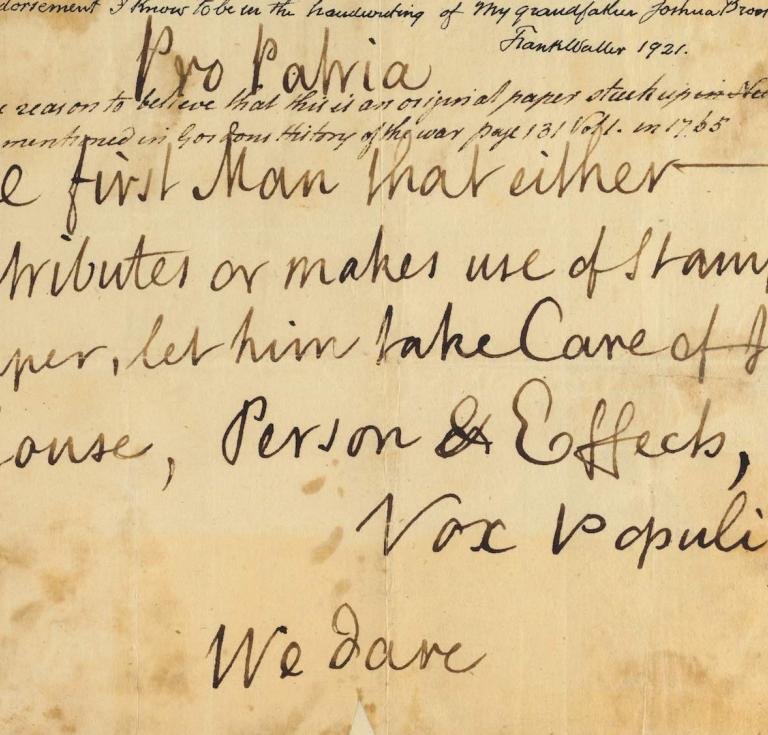 dorsement I know to be in the handwriting of my grandfather Joshua Broo
Frank Waller 1921.
Pro Patria
e reason to believe that this is an original paper stuck up in Ne
mentioned in Gordons History of the war page 131 Vol 1. in 1765
e first Man that either
tributes or makes use of Stam
per, let him take Care of
ouse, Person & Effects,
Vox Populi
We dare